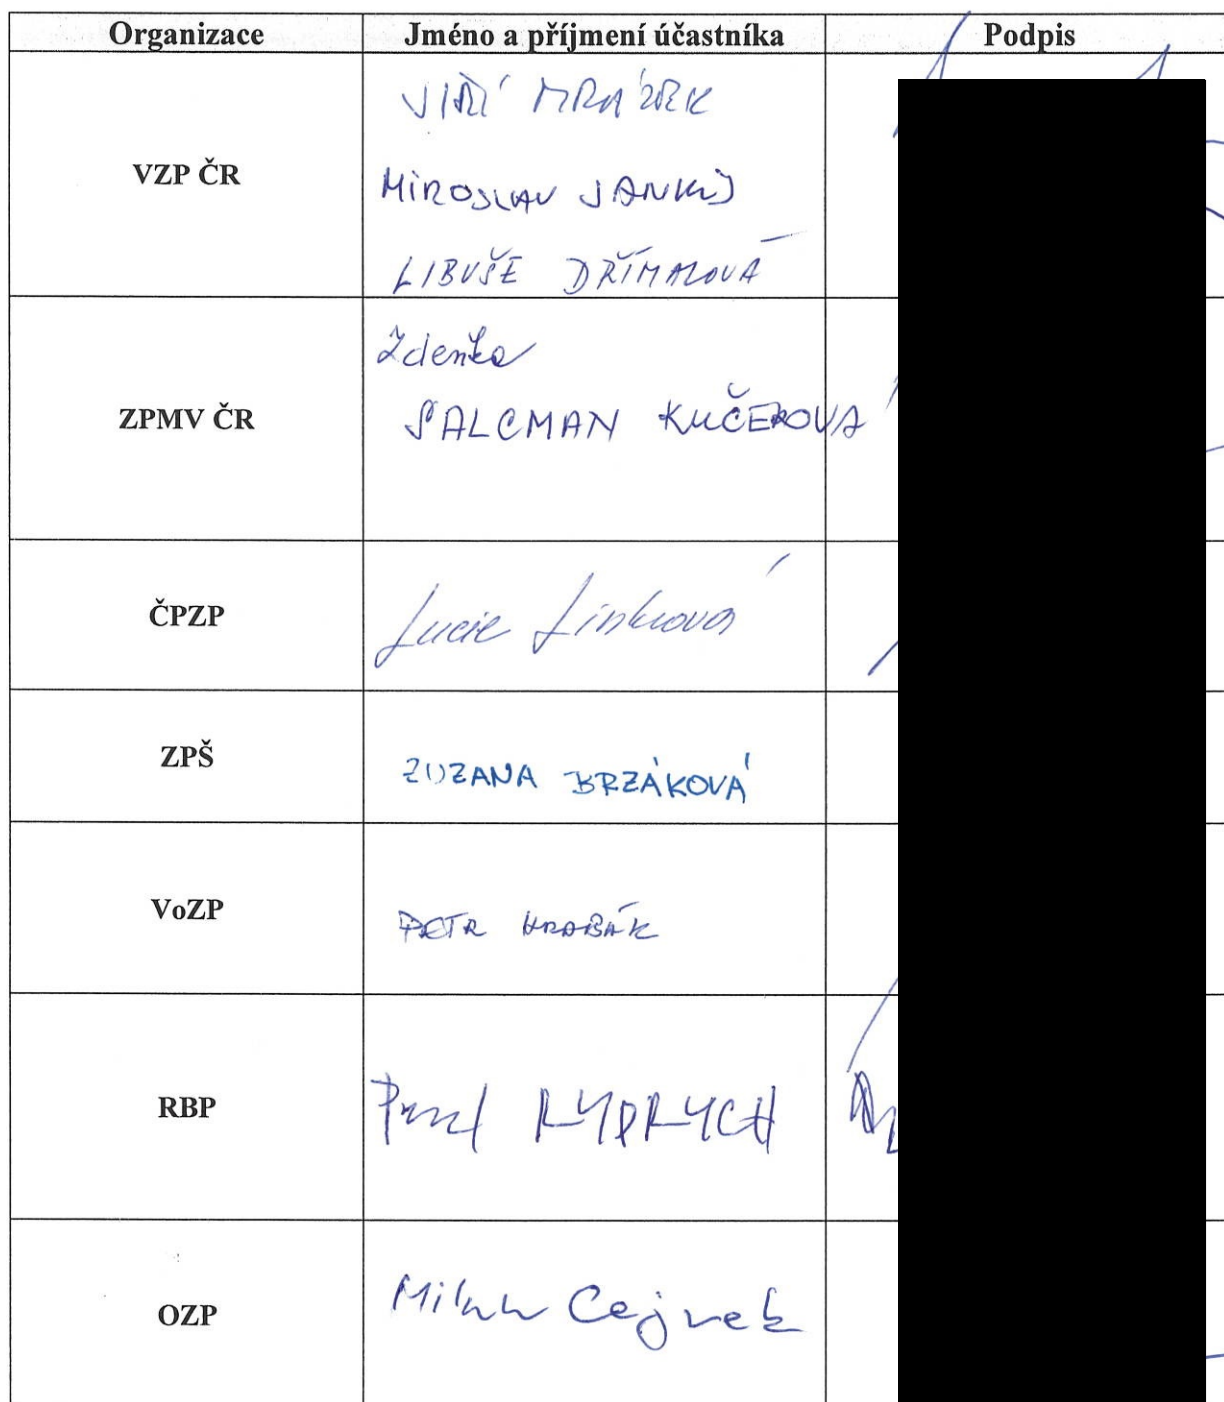 Organizace Jméno a příjmení účastníka Podpis
VZP ČR
JIŘÍ MRÁZEK
MIROSLAV JANKŮ
LIBUŠE DŘÍMALOVÁ
ZPMV ČR
Zdenka
SALCMAN KUČEROVÁ
ČPZP
Lucie Linková
ZPŠ
ZUZANA BRZÁKOVÁ
VoZP
PETR HRABÁK
RBP
RYPRYCH
OZP
Milan Cejnek